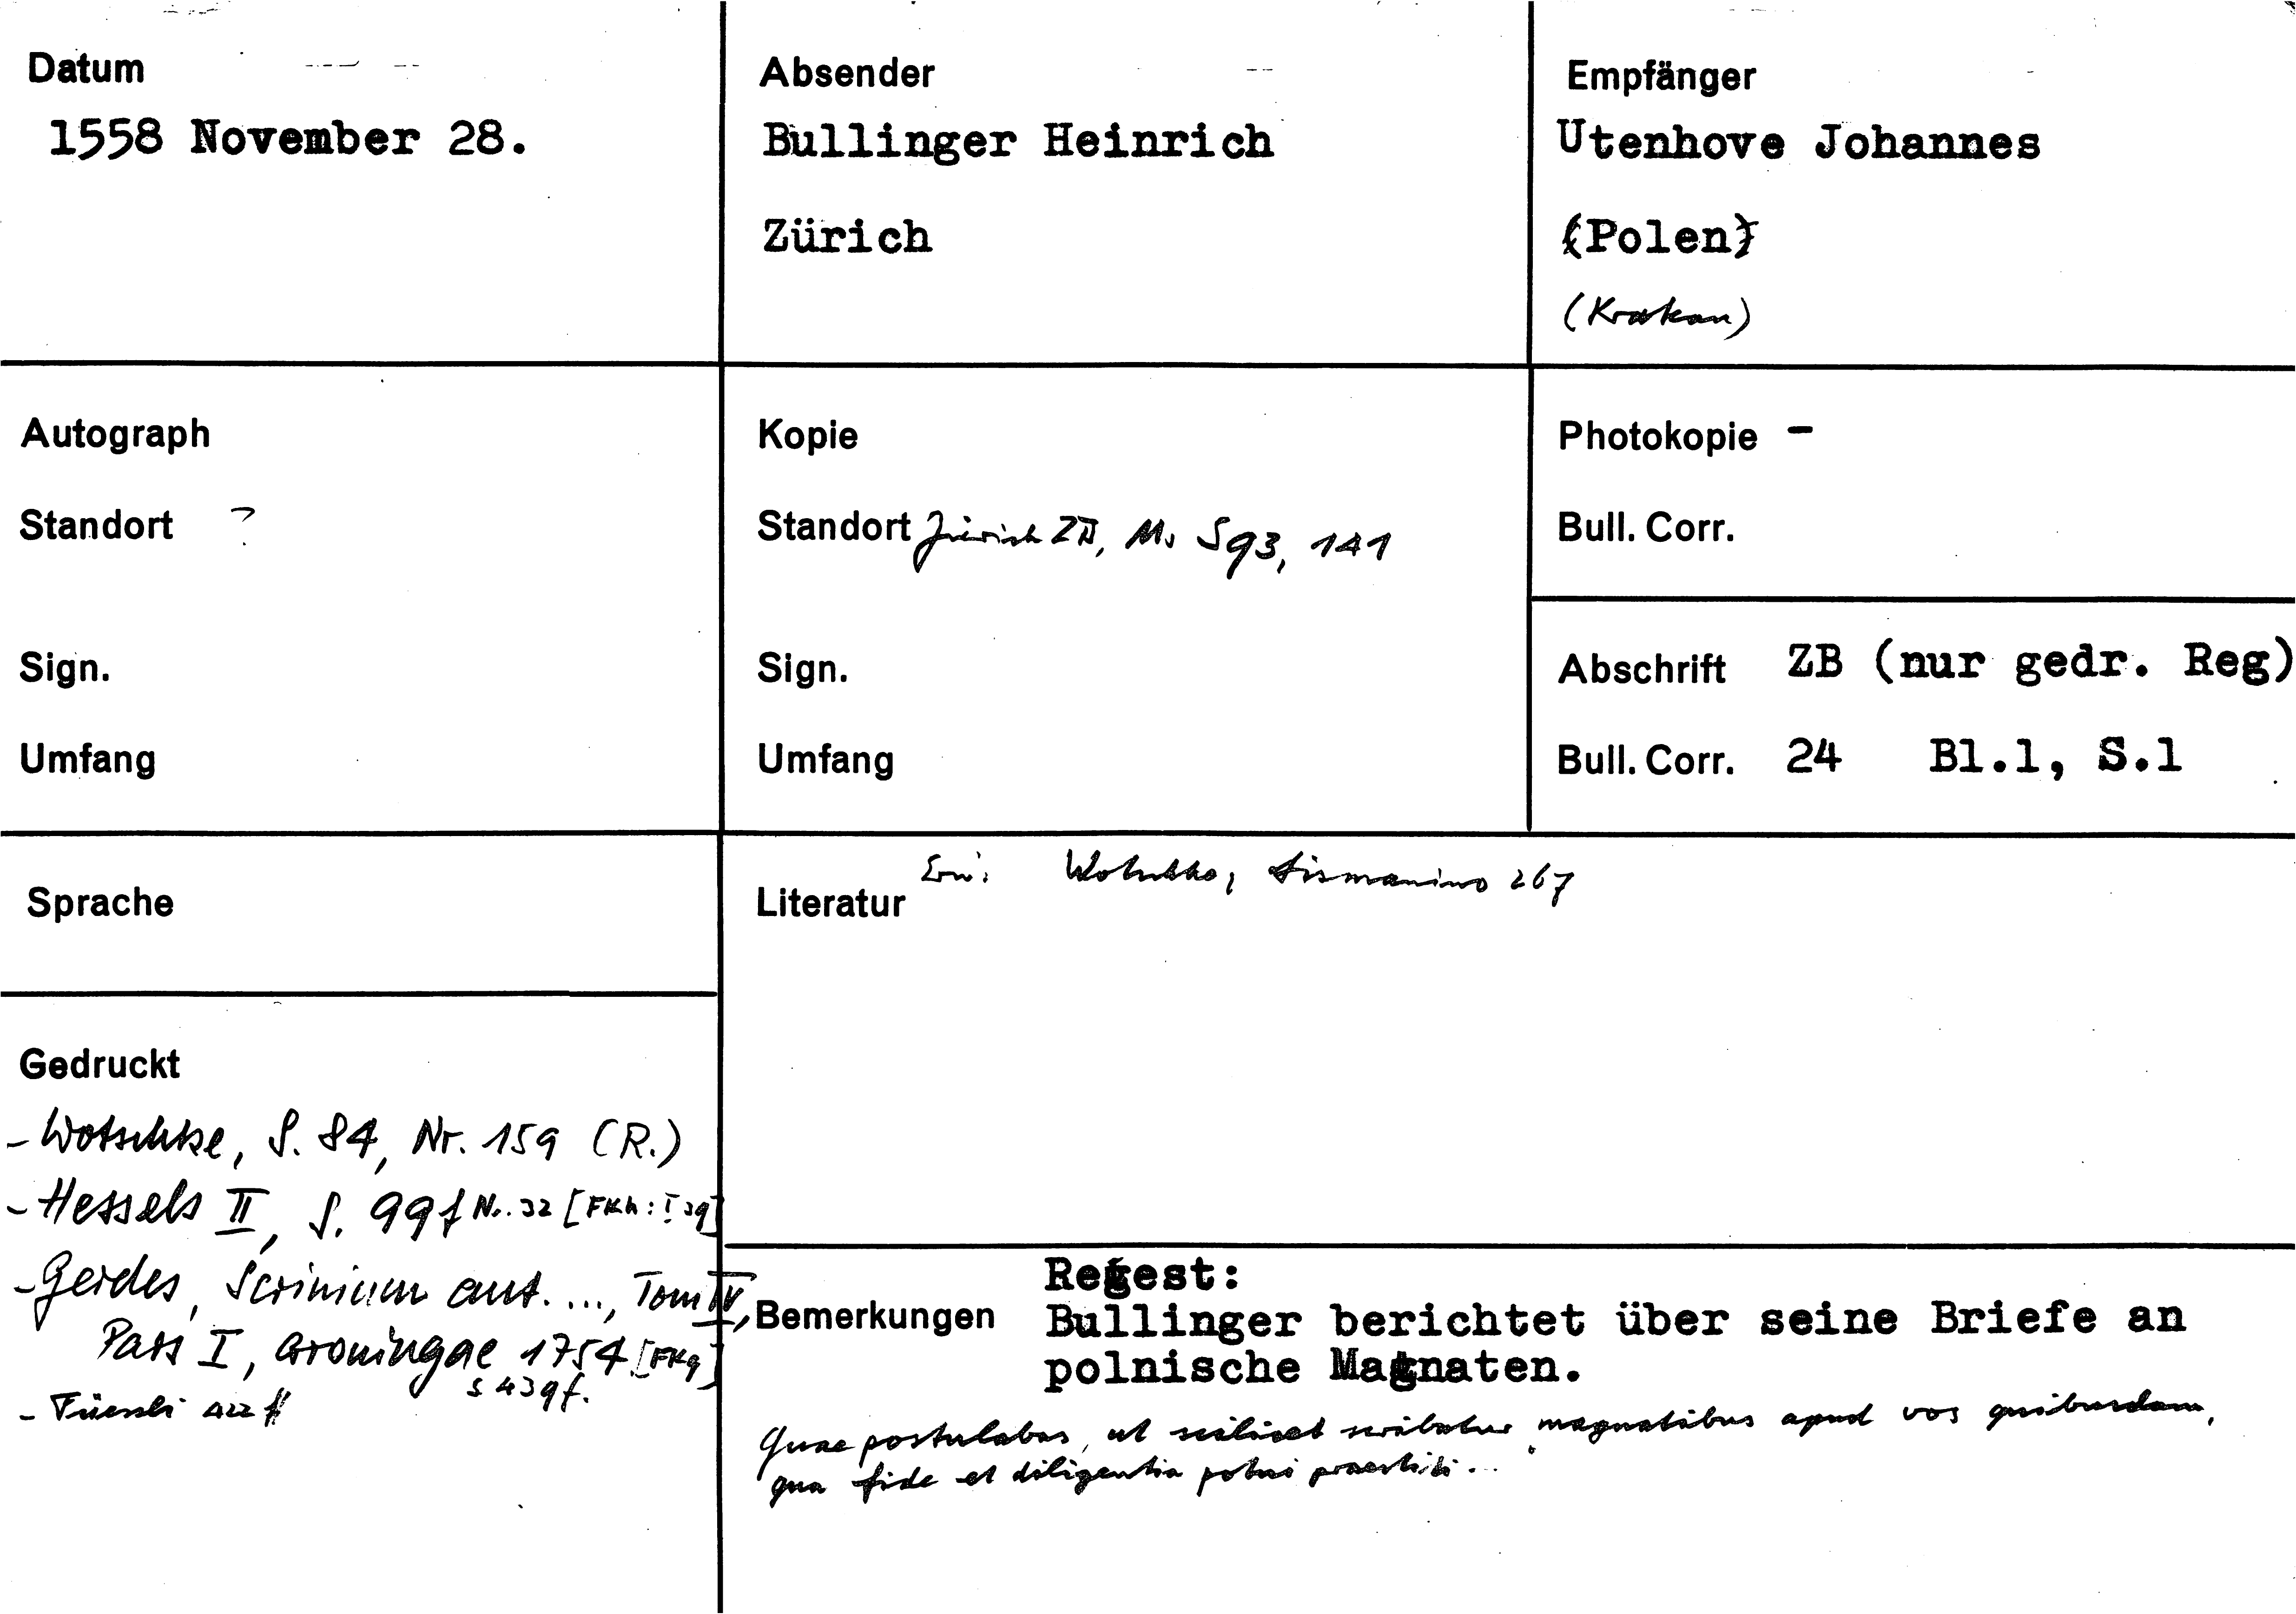 Datum
1558 November 28.
Absender
Bullinger Heinrich
Zürich
Empfänger
Utenhove Johannes
(Polen)
(Krakau)
Autograph
Standort ?
Sign.
Umfang
Kopie
Standort Zürich ZB, Ms S 93, 141
Sign.
Umfang
Photokopie -
Bull. Corr.
Abschrift ZB (nur gedr. Reg)
Bull. Corr. 24 Bl.1, S.1
Sprache
Literatur Wotschke, Lismanino 267
Gedruckt
- Wotschke, S. 84, Nr. 159 (R.)
- Hessels II, S. 99f Nr. 32 [FKh: I 39]
- Gerdes, Scrinium ant. ..., Tom IV,
Pars I, Groningae 1754 [FKg]
S 439f.
- Füessli 422 ff
Bemerkungen
Regest:
Bullinger berichtet über seine Briefe an
polnische Magnaten.
Quae postulabas, ut scilicet scribatur magnatibus apud vos quibusdam,
qua fide et diligentia potui praestiti...